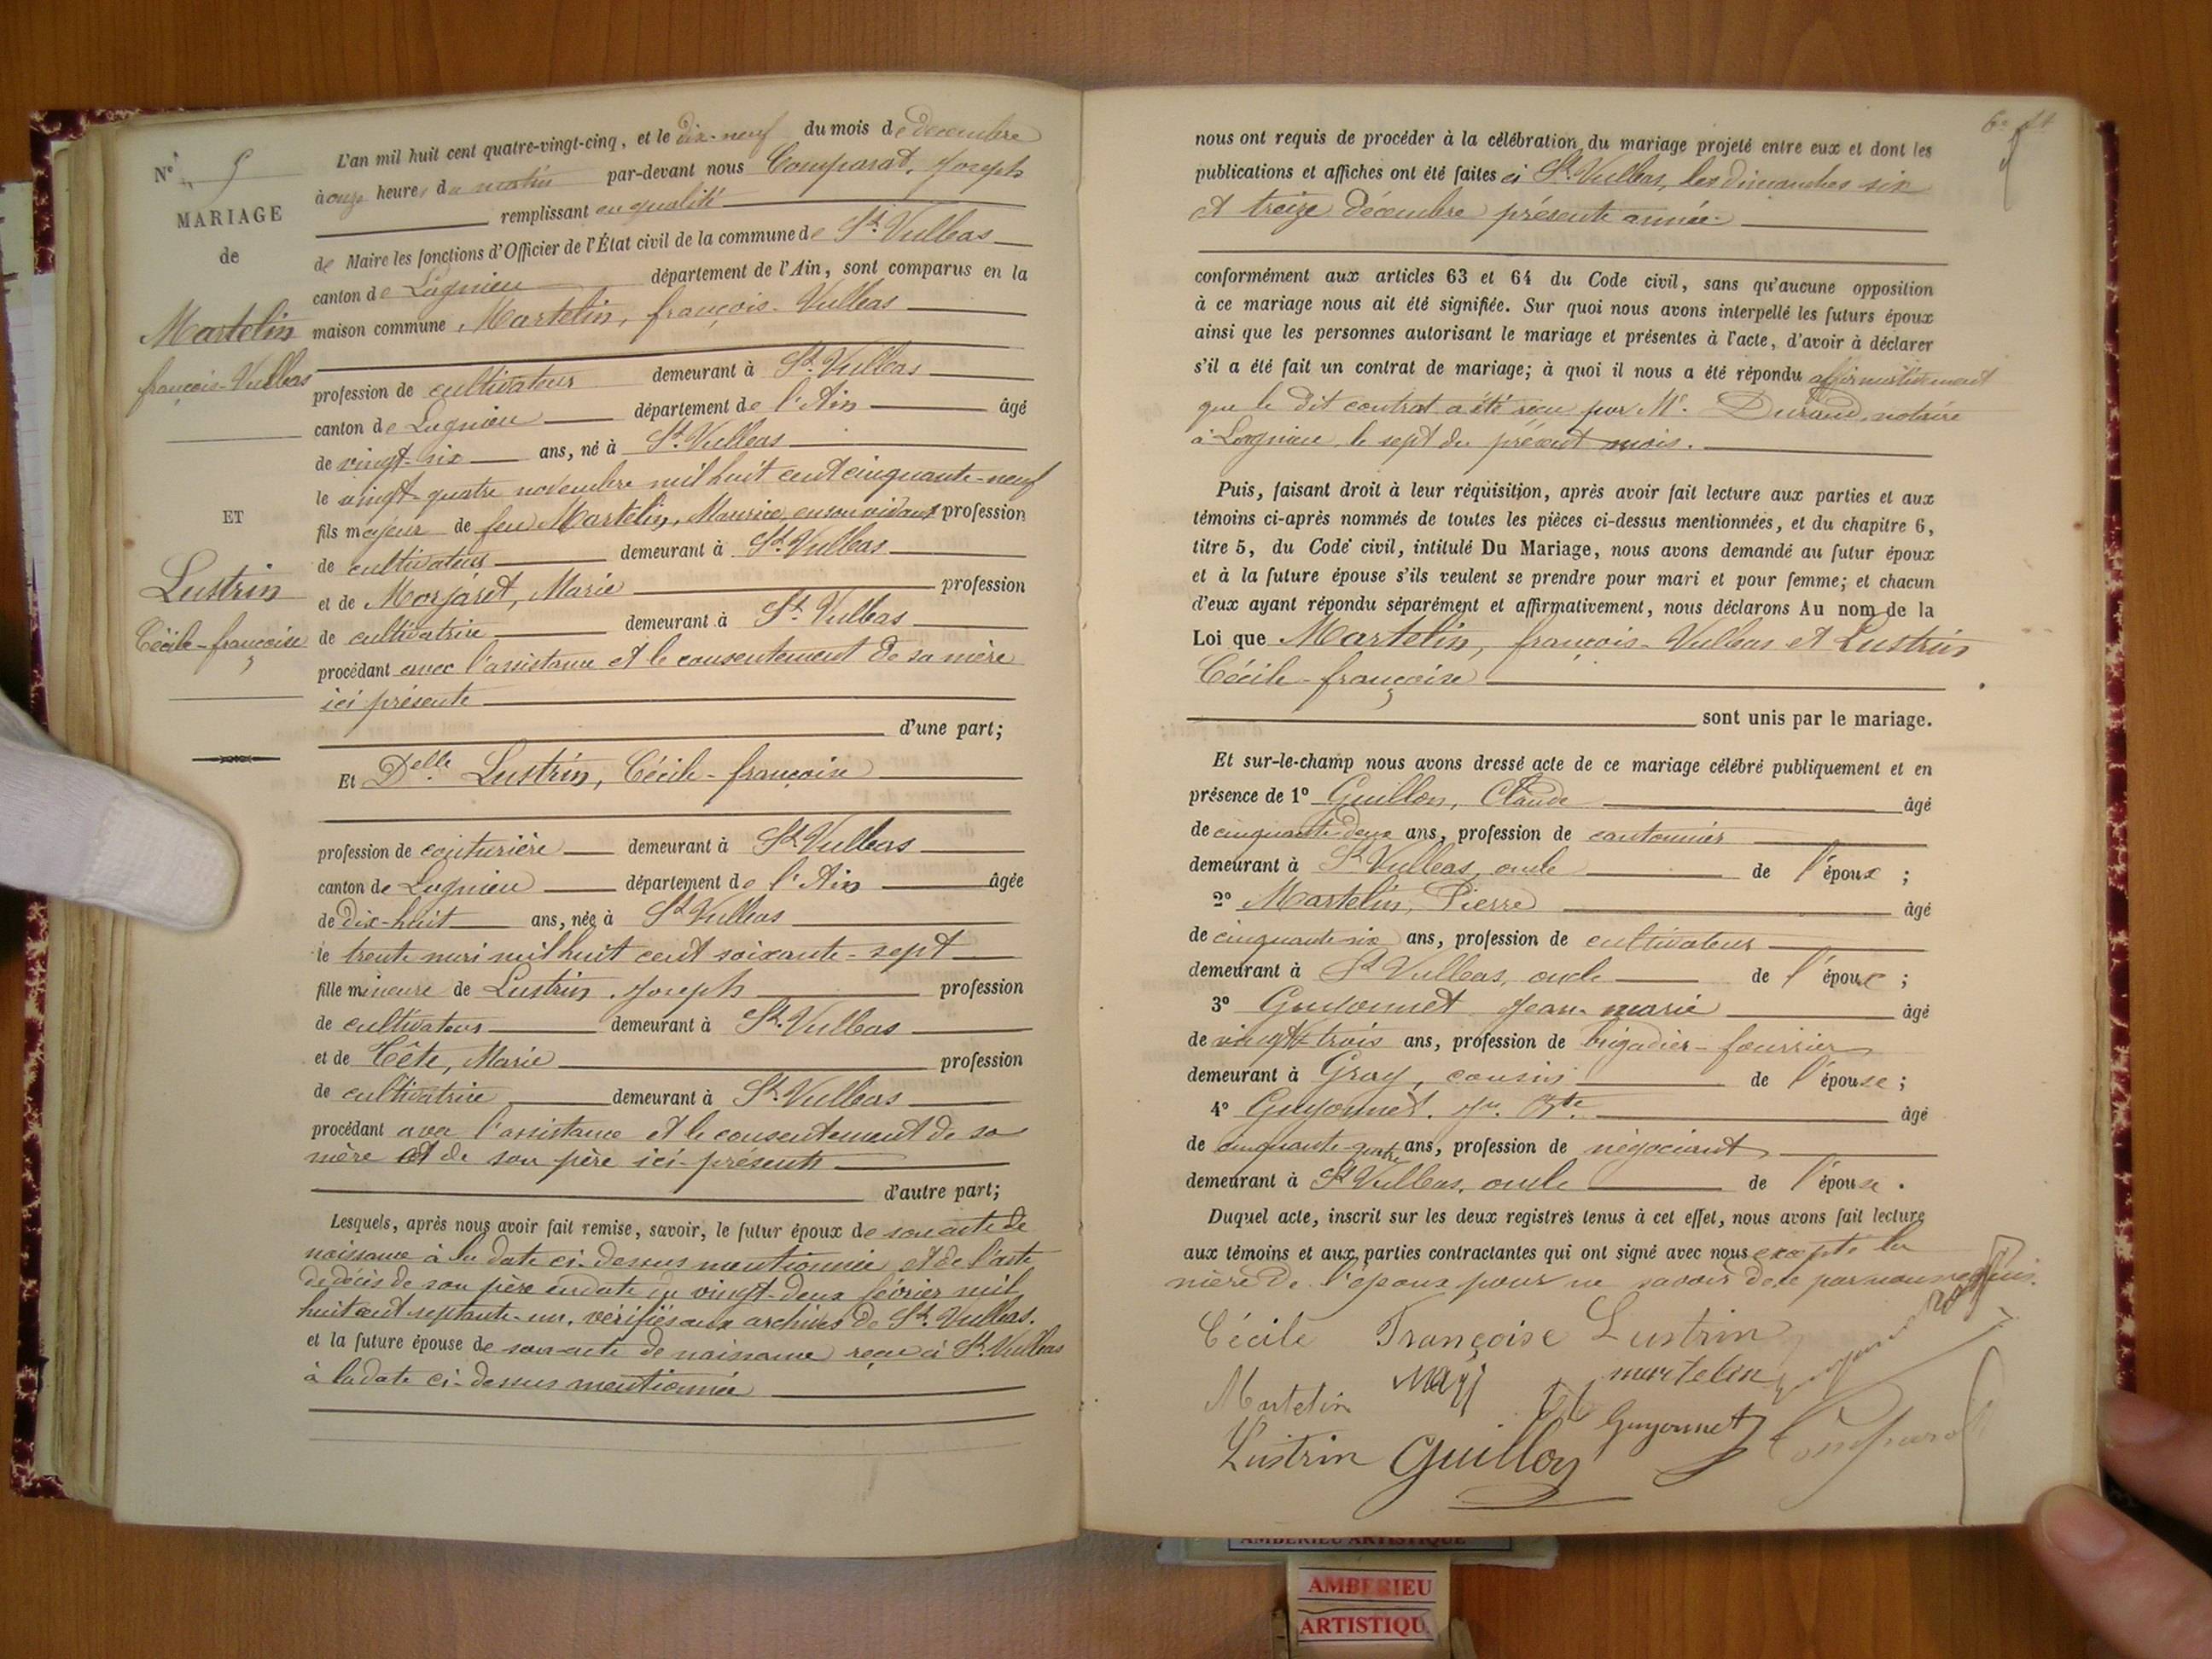 N° 5
MARIAGE
de
Martelin
françois-Vulbas
ET
Lustrin
Cécile-françoise
L'an mil huit cent quatre-vingt-cinq, et le dix-neuf du mois de décembre
à onze heures du matin par-devant nous Comparat, Joseph
remplissant en qualité
de Maire les fonctions d'Officier de l'État civil de la commune de St. Vulbas
canton de Lagnieu département de l'Ain, sont comparus en la
maison commune, Martelin, françois-Vulbas
profession de cultivateur demeurant à St. Vulbas
canton de Lagnieu département de l'Ain âgé
de vingt-six ans, né à St. Vulbas
le vingt-quatre novembre mil huit cent cinquante-neuf
fils majeur de feu Martelin, Maurice, en son vivant profession
de cultivateur demeurant à St. Vulbas
et de Morjaret, Marie profession
de cultivatrice demeurant à St. Vulbas
procédant avec l'assistance et le consentement de sa mère
ici présente
d'une part;
Et Delle Lustrin, Cécile-françoise
profession de couturière demeurant à St. Vulbas
canton de Lagnieu département de l'Ain âgée
de dix-huit ans, née à St. Vulbas
le trente mars mil huit cent soixante-sept
fille mineure de Lustrin, Joseph profession
de cultivateur demeurant à St. Vulbas
et de Tête, Marie profession
de cultivatrice demeurant à St. Vulbas
procédant avec l'assistance et le consentement de sa
mère et de son père ici-présents
d'autre part;
Lesquels, après nous avoir fait remise, savoir, le futur époux de son acte de
naissance à la date ci-dessus mentionnée et de l'acte
de décès de son père en date du vingt-deux février mil
huit cent septante-un, vérifiés aux archives de St. Vulbas.
et la future épouse de son acte de naissance reçu à St. Vulbas
à la date ci-dessus mentionnée
nous ont requis de procéder à la célébration du mariage projeté entre eux et dont les
publications et affiches ont été faites à St. Vulbas, les dimanches six
et treize décembre présente année
conformément aux articles 63 et 64 du Code civil, sans qu'aucune opposition
à ce mariage nous ait été signifiée. Sur quoi nous avons interpellé les futurs époux
ainsi que les personnes autorisant le mariage et présentes à l'acte, d'avoir à déclarer
s'il a été fait un contrat de mariage; à quoi il nous a été répondu affirmativement
que le dit contrat a été reçu par Me. Durand, notaire
à Lagnieu, le sept du présent mois.
Puis, faisant droit à leur réquisition, après avoir fait lecture aux parties et aux
témoins ci-après nommés de toutes les pièces ci-dessus mentionnées, et du chapitre 6,
titre 5, du Code civil, intitulé Du Mariage, nous avons demandé au futur époux
et à la future épouse s'ils veulent se prendre pour mari et pour femme; et chacun
d'eux ayant répondu séparément et affirmativement, nous déclarons Au nom de la
Loi que Martelin, françois-Vulbas et Lustrin
Cécile-françoise
sont unis par le mariage.
Et sur-le-champ nous avons dressé acte de ce mariage célébré publiquement et en
présence de 1° Guillon, Claude âgé
de cinquante-deux ans, profession de cantonnier
demeurant à St. Vulbas, oncle de l'époux;
2° Martelin, Pierre âgé
de cinquante-six ans, profession de cultivateur
demeurant à St. Vulbas, oncle de l'époux;
3° Guyonnet Jean-marie âgé
de vingt-trois ans, profession de brigadier-fourrier
demeurant à Gray, cousin de l'épouse;
4° Guyonnet. Jn. Bte. âgé
de cinquante-quatre ans, profession de négociant
demeurant à St. Vulbas, oncle de l'épouse.
Duquel acte, inscrit sur les deux registres tenus à cet effet, nous avons fait lecture
aux témoins et aux parties contractantes qui ont signé avec nous excepté la
mère de l'époux pour ne savoir de ce par nous requis.
Cécile Françoise Lustrin
Martelin martelin
Guyonnet Comparat
Lustrin Guillon
AMBERIEU ARTISTIQUE
AMBERIEU
ARTISTIQU